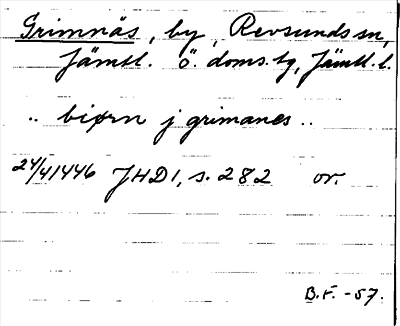 Grimnäs, by, Revsunds sn,
Jämtl. ö. doms.tg, Jämtl. l.
.. biørn j grimanes ..
24/4 1446 JHD 1, s. 282 or.
B.F. -57.